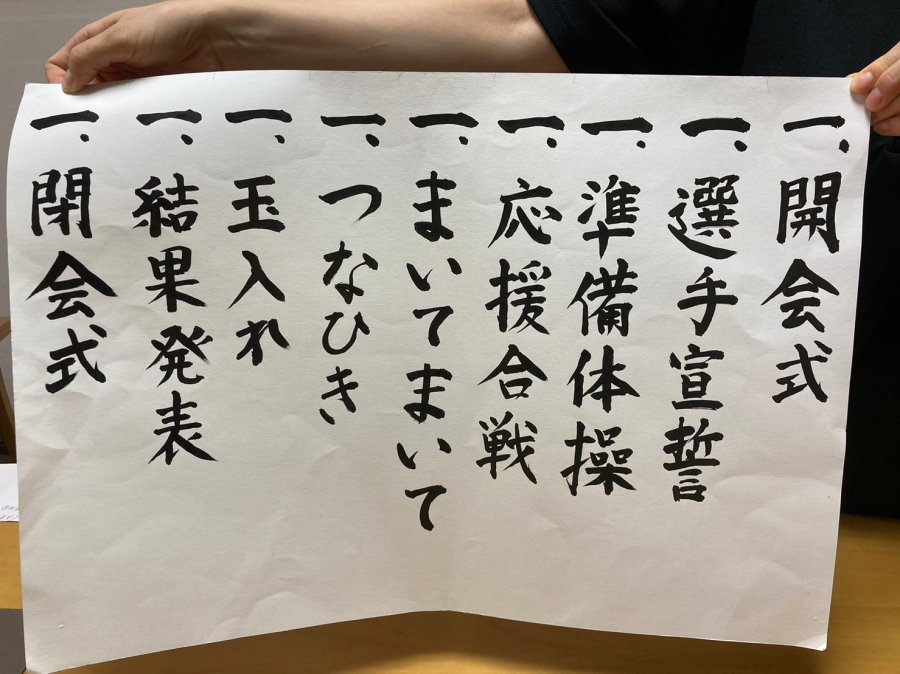 一、開会式
一、選手宣誓
一、準備体操
一、応援合戦
一、まいてまいて
一、つなひき
一、玉入れ
一、結果発表
一、閉会式